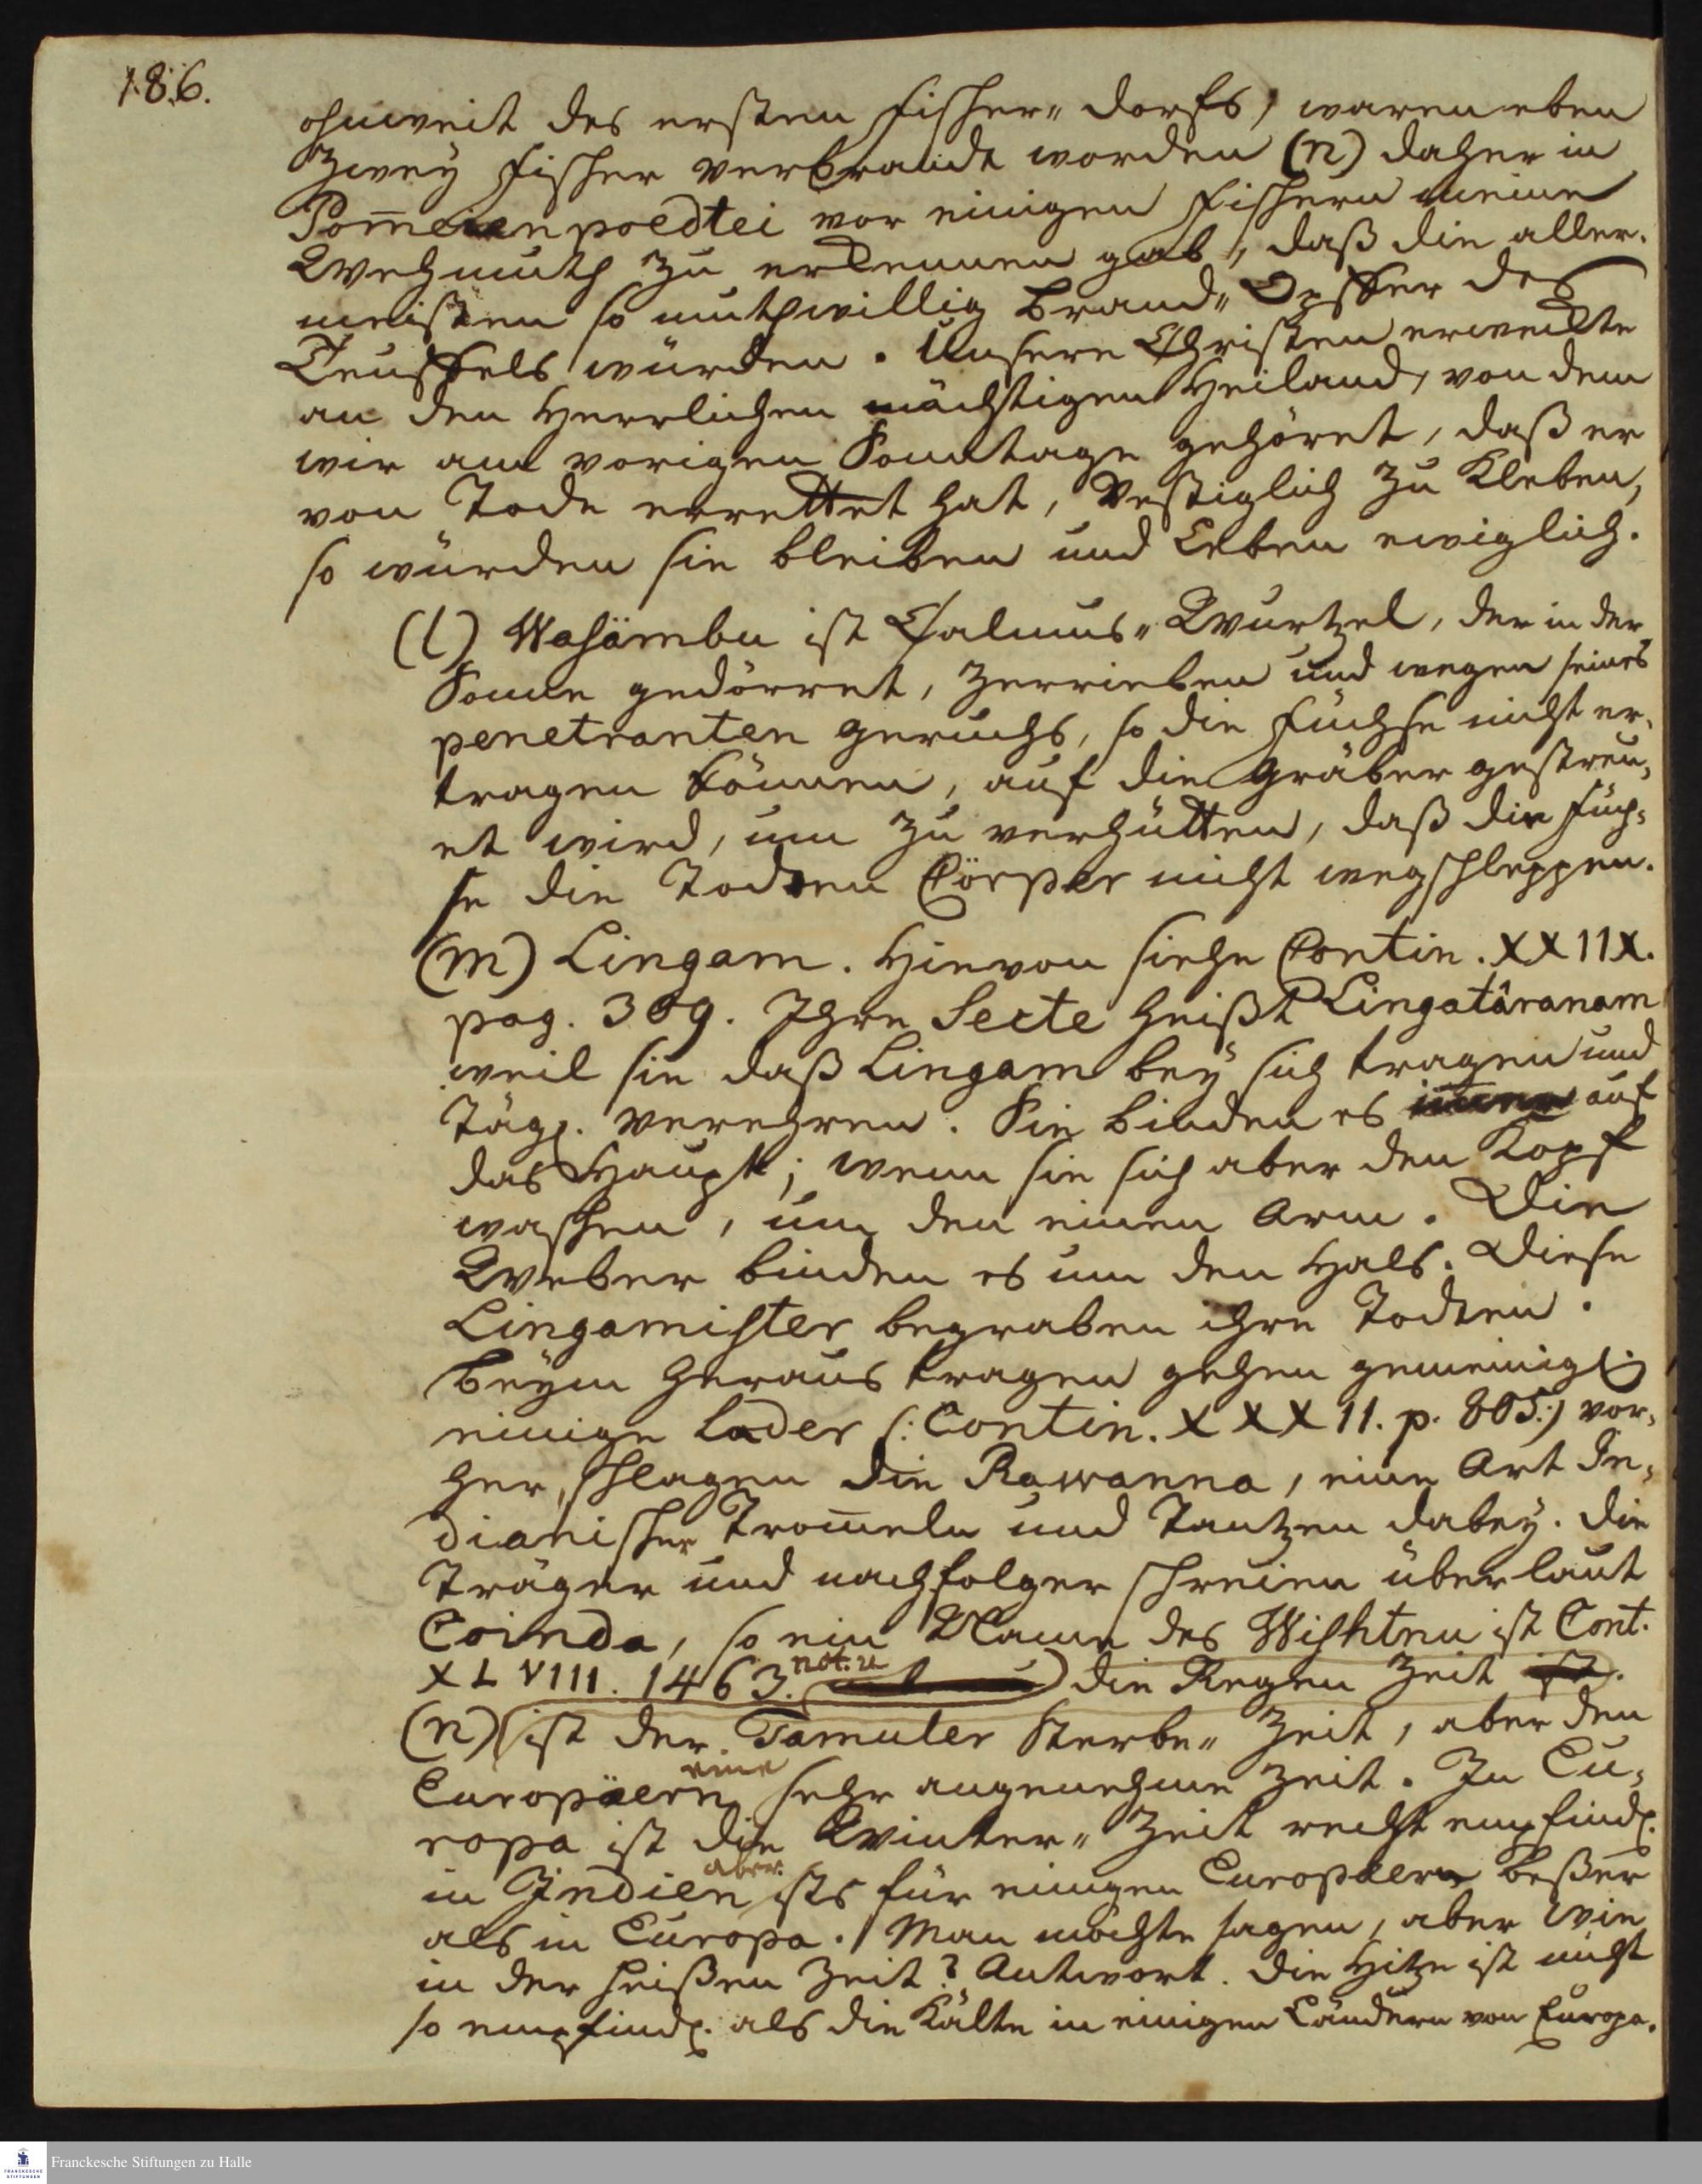 186.
ohnweit des ersten Fischer„ dorfs, waren eben
Zwey Fischer verbrandt worden (n) daher in
Pom̄eienpoedtei vor einigen Fischern meine
Wehmuth zu erkennen gab, daß die aller„
meisten so muthwillig Brand„ Opffer des
Teuffels würden. Unsere Christen erweckte
an den Herrlichen mächtigen Heiland, von dem
wir am vorigen Sonntage gehöret, daß er
von Tode errettet hat, Vestiglich zu Kleben,
so würden sie bleiben und Leben ewiglich.
(l) Wasämbu ist Calmus„ Wurtzel, der in der
Sonne gedörret, Zerrieben und wegen seines
penetranten geruchs, so die Füchse nicht er„
tragen können, auf die Gräber gestreu„
et wird, um zu verhütten, daß die Füch„
se die Todten Cörper nicht wegschleppen.
(m) Lingam. Hievon siehe Contin. XXIIX.
pag. 309. Ihre Secte heißt Lingatâranam
weil sie daß Lingam bey sich tragen und
Tägl. verehren. Sie binden es auf
das Haupt; wenn sie sich aber den Kopf
waschen, um den einen Arm. Die
Weber binden es um den Hals. Diese
Lingamister begraben ihre Todten.
Beym heraus tragen gehen gemeinigl.
einige Lader (: Contin. XXXII. p. 805:) vor„
her, schlagen die Rawanna, eine Art In„
dianischer Trom̄eln und Tantzen dabey. Die
Träger und nachfolger schreien über laut
Coinda, so ein Name des Wishtnu ist Cont.
XLVIII. 1463. not. u die Regen Zeit
(n) ist der Tamuler Sterbe„ Zeit, aber den
Europäern eine sehr angenehme Zeit. In Eu„
ropa ist die Winter„ Zeit recht empfindl.
in Indien aber ists für einigen Europäern beßer
als in Europa. Man möchte sagen, aber wie
in der heißen Zeit? Antwort. Die Hitze ist nicht
so empfindl. als die Kälte in einigen Ländern von Europa.
Franckesche Stiftungen zu Halle